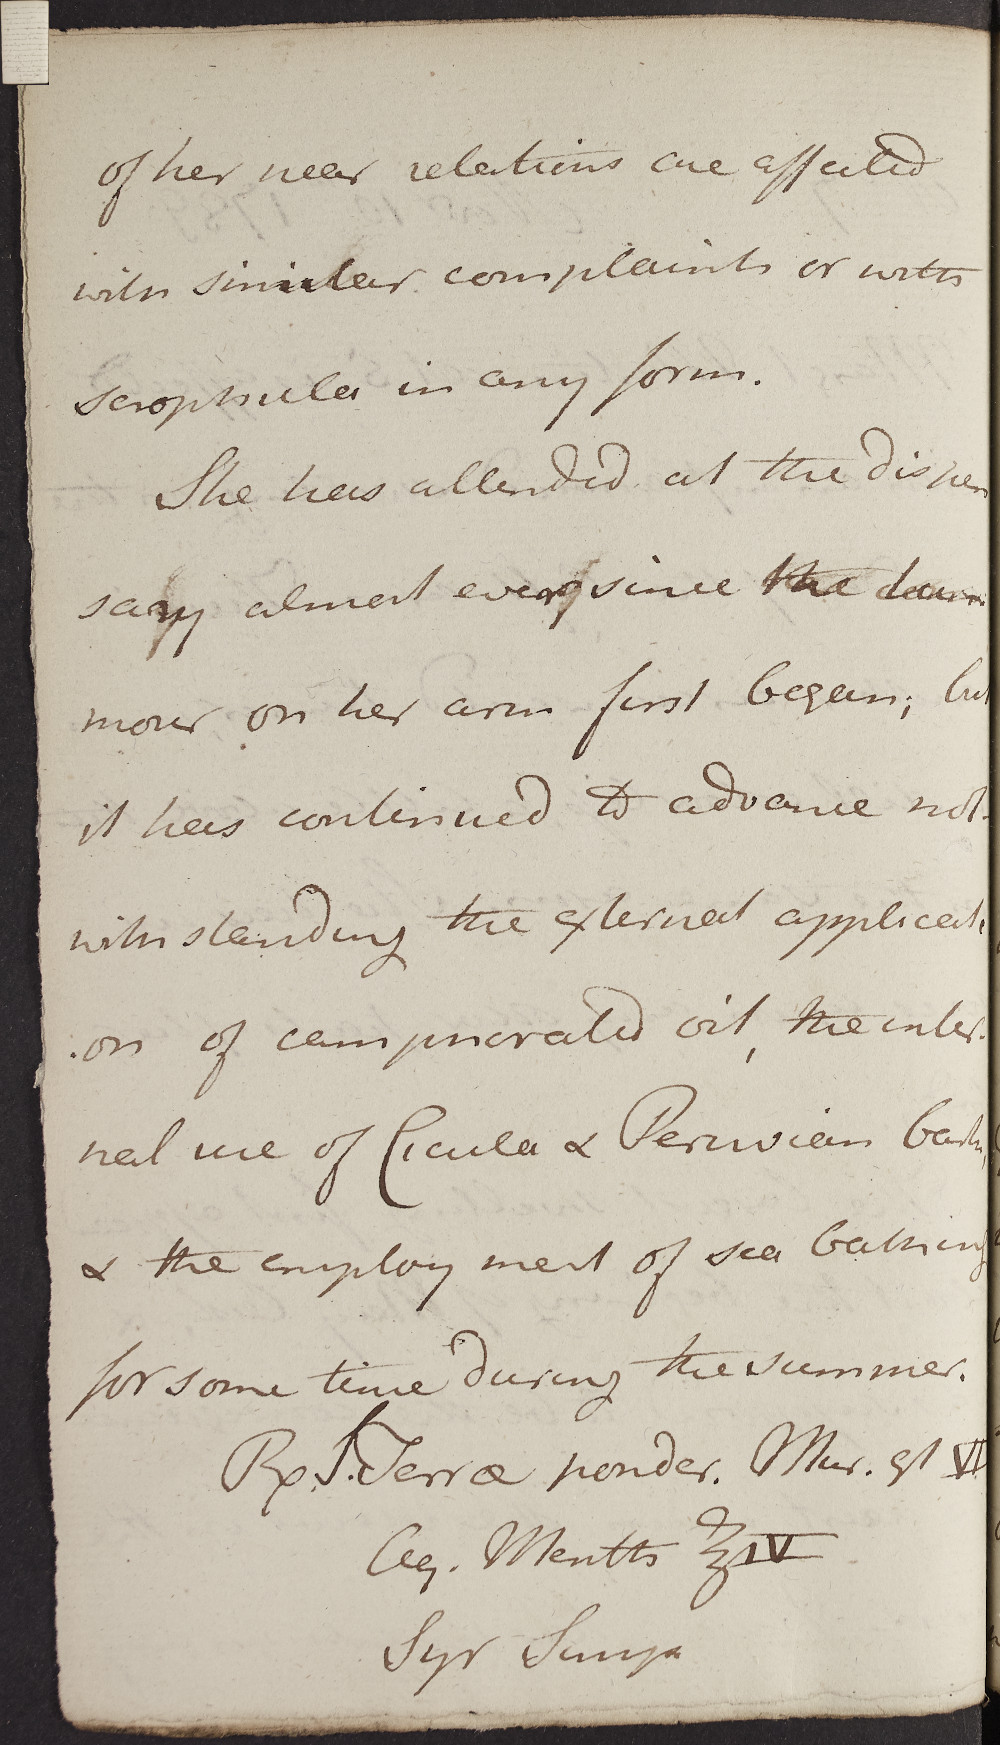 of her near relations are affected
with similar complaints or with
scrophula in any form.
She has attended at the dispen
sary almost ever since the tum
mour on her arm first began; but
it has continued to advance not-
withstanding the external applicati
.on of camphorated oil, the inter-
nal use of Cicuta & Peruvian bark,
& the employment of sea bathing
for some time during the summer.
Rx. S. Terræ ponder. Mur. gt VI
Aq. Menth ℥IV
Syr Simp